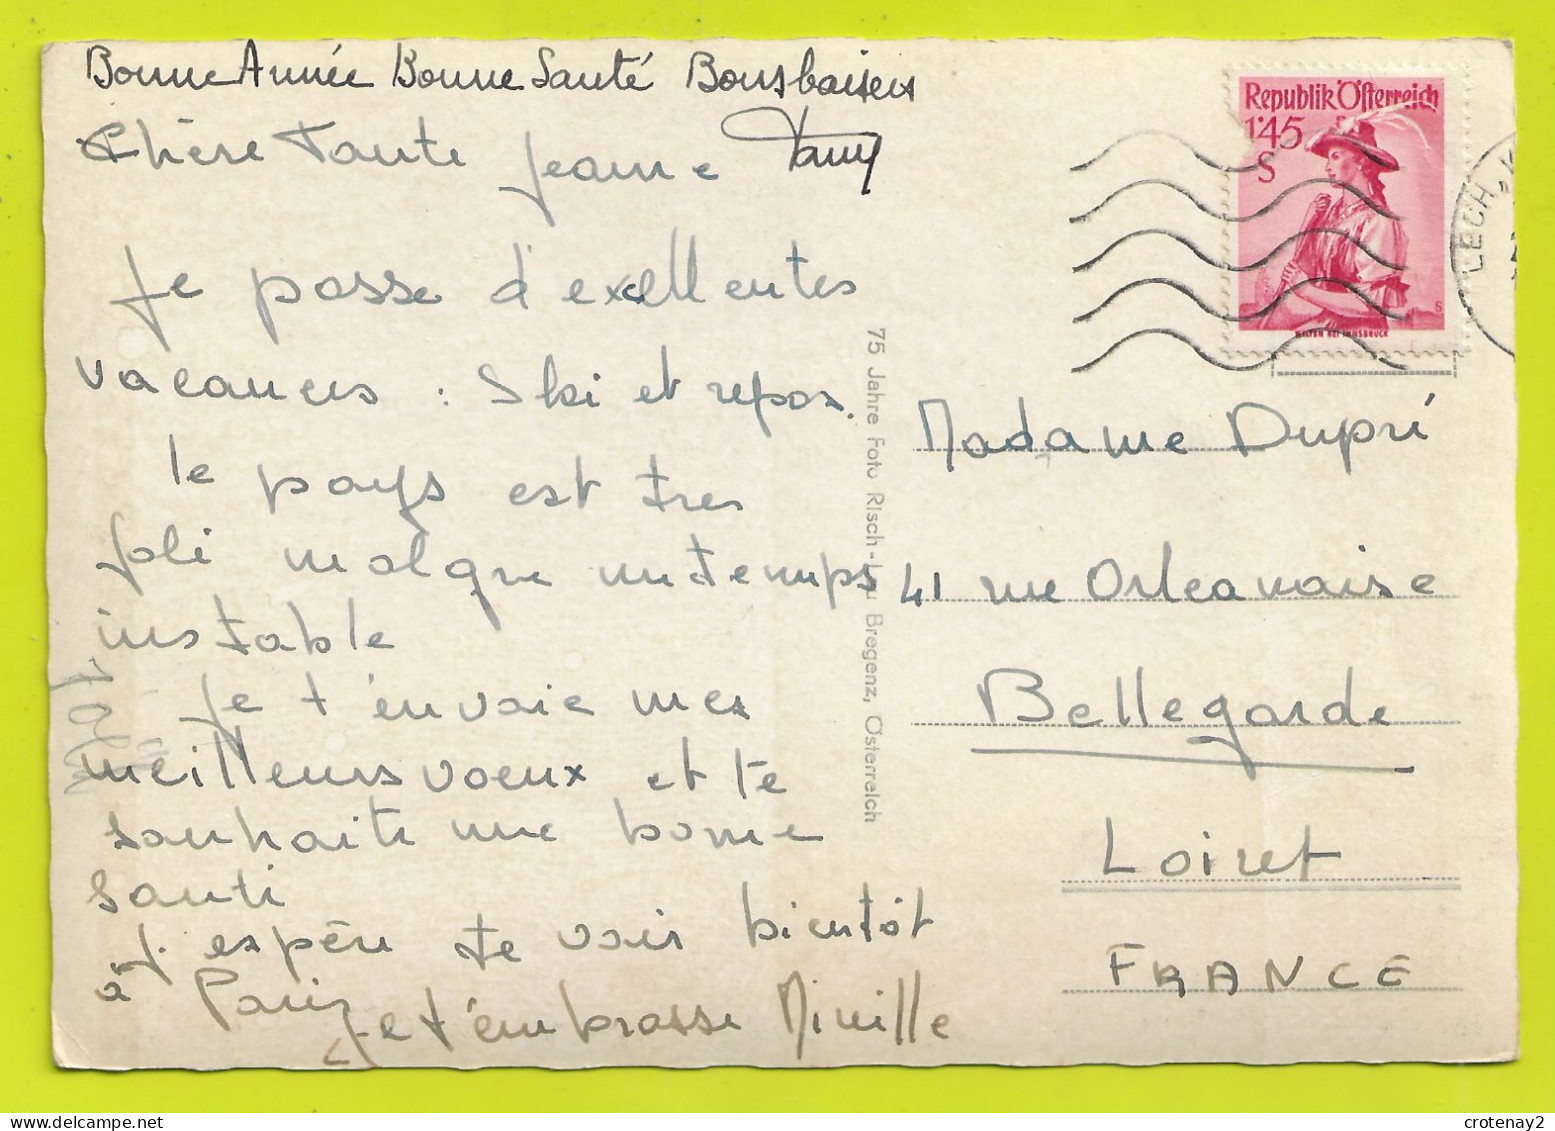 Bonne Année Bonne Santé Bons baisers
Chère Tante Jeanne
Je passe d'exellentes
vacances : Ski et repos.
le pays est tres
joli malgre un temps
instable
Je t'envoie mes
meilleurs voeux et te
souhaite une bonne
santé
J'espère te voir bientôt
à Paris
Je t'embrasse Mireille
75 Jahre Foto Risch-Lau Bregenz, Österreich
Republik Österreich
1'45
S
WILTEN BEI INNSBRUCK
LECH
Madame Dupré
41 rue Orleanaise
Bellegarde
Loiret
FRANCE
crotenay2